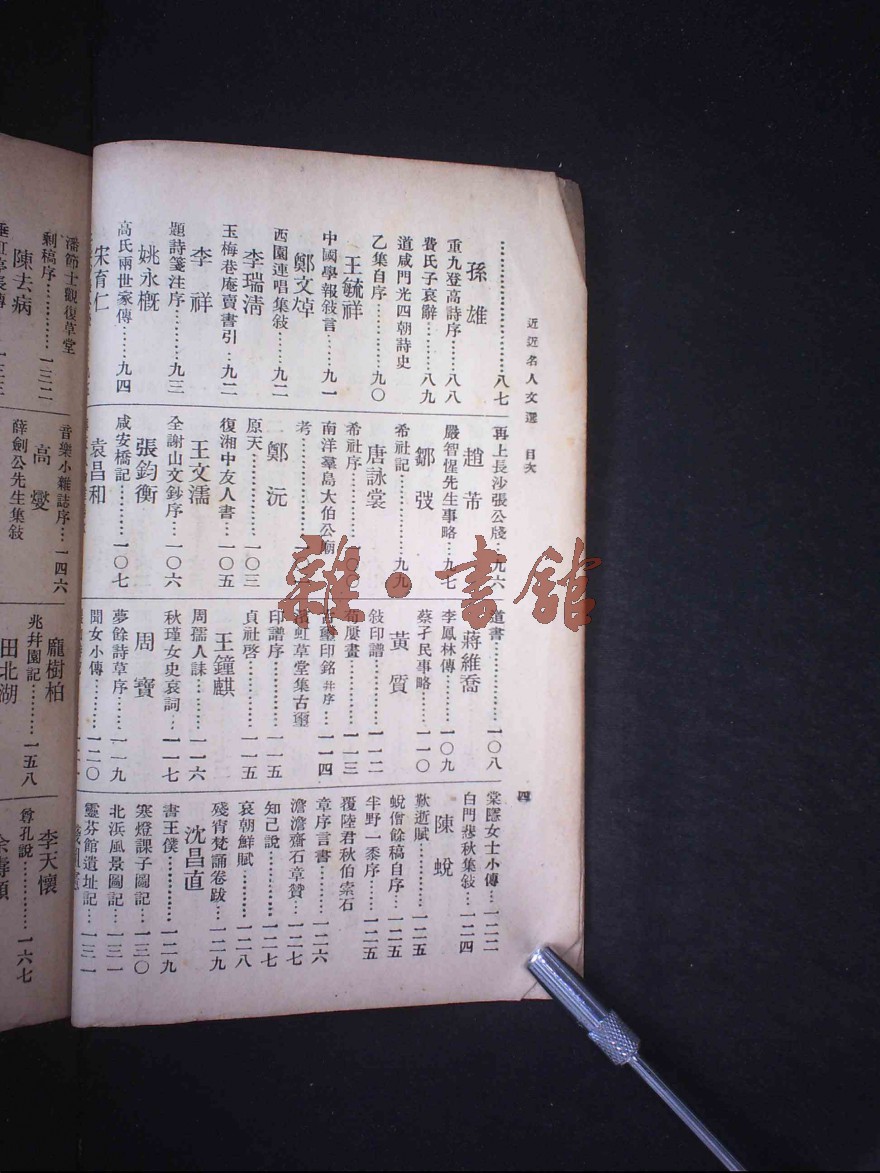 近近名人文選　目次
四
………………………八七
孫　雄
重九登高詩序……八八
費氏子哀辭………八九
道咸同光四朝詩史
乙集自序…………九〇
王毓祥
中國學報敍言……九一
鄭文焯
西園連唱集敍……九二
李瑞淸
玉梅巷庵賣書引…九二
李　祥
題詩箋注序………九三
姚永槪
高氏兩世家傳……九四
宋育仁
再上長沙張公牋…九六
趙　芾
嚴智惺先生事略…九七
鄒　弢
希社記……………九九
唐詠裳
希社序……………一〇〇
南洋羣島大伯公廟
考…………………
鄭　沅
原天………………一〇三
復湘中友人書……一〇五
王文濡
全謝山文鈔序……一〇六
張鈞衡
咸安橋記…………一〇七
袁昌和
道書………………一〇八
蔣維喬
李鳳林傳…………一〇九
蔡孑民事略………一一〇
黃　質
敍印譜……………一一二
荀廎畫……………一一三
古璽印銘幷序……一一四
濱虹草堂集古璽
印譜序……………一一五
貞社啓……………一一五
王鐘麒
周孺人誄…………一一六
秋瑾女史哀詞……一一七
周　實
夢餘詩草序………一一九
聞女小傳…………一二〇
棠隱女士小傳……一二二
白門悲秋集敍……一二四
陳　蛻
歎逝賦……………一二五
蛻僧餘稿自序……一二五
半野一黍序………一二五
覆陸君秋伯索石
章序言書…………一二六
澹澹齋石章贊……一二七
知己說……………一二七
哀朝鮮賦…………一二八
殘宵梵誦卷跋……一二九
沈昌直
書王僕……………一二九
寒燈課子圖記……一三〇
北浜風景圖記……一三一
靈芬館遺址記……一三一
潘節士觀復草堂
剩稿序……………一三二
陳去病
垂虹亭長傳………一三三
音樂小雜誌序……一四六
高　燮
薛劍公先生集敍
龐樹柏
兆幷園記…………一五八
田北湖
李天懷
尊孔說……………一六七
余壽頤
雜·書館